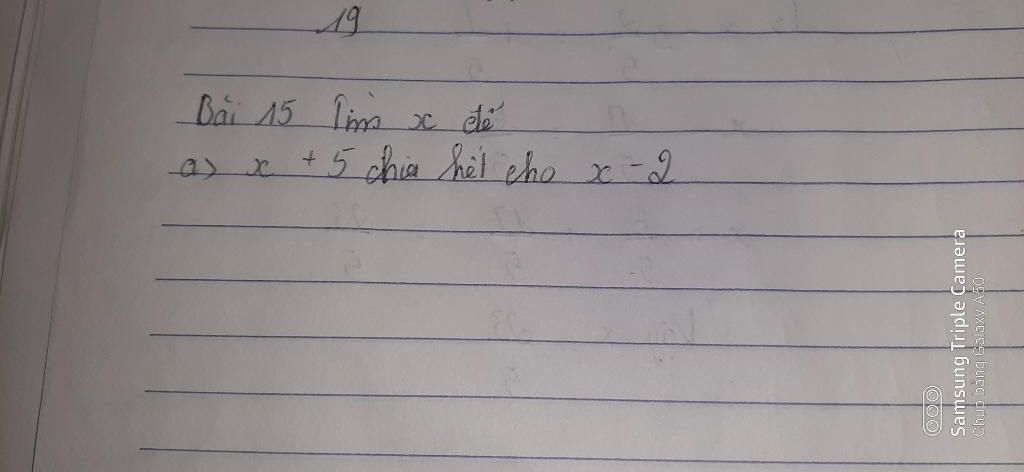 19
Bài 15 Tìm x để
a> x + 5 chia hết cho x - 2
Samsung Triple Camera
Chụp bằng Galaxy A50